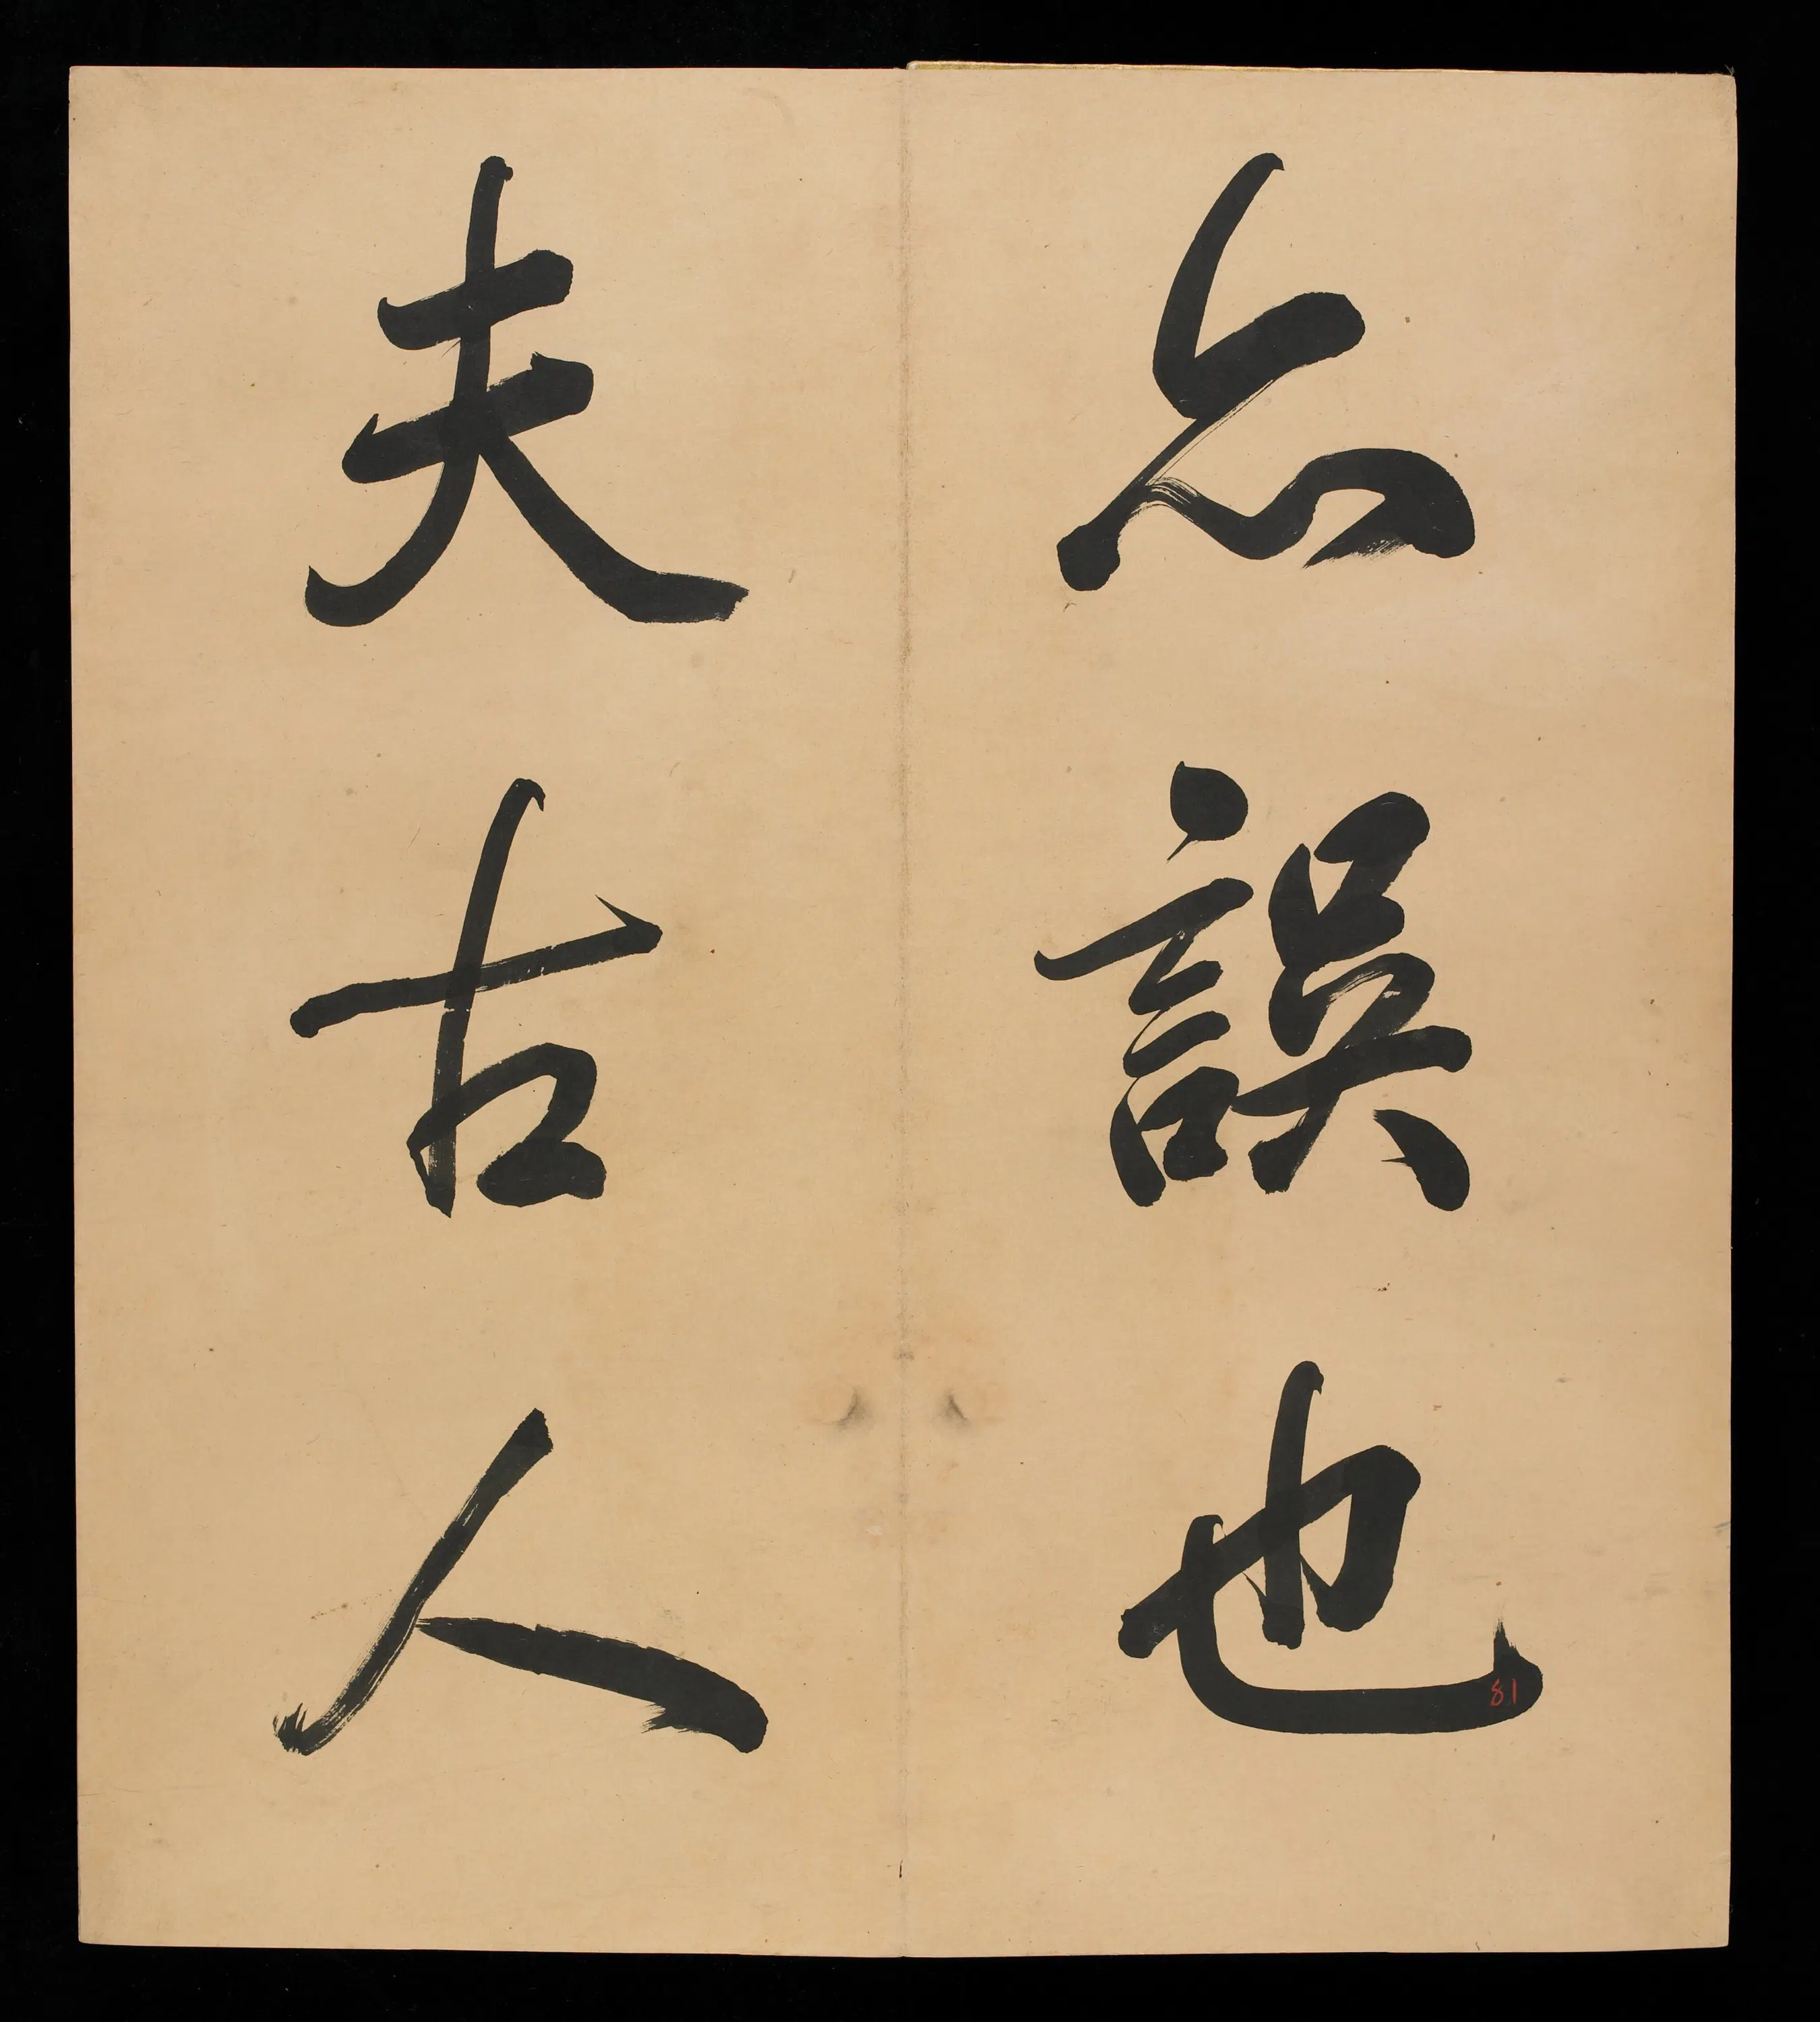 亦誤也
夫古人
81